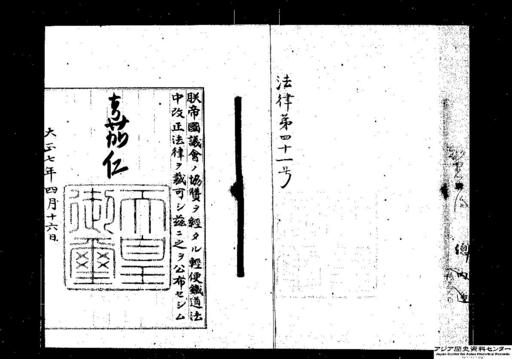 法律第四十一号
朕帝國議會ノ協賛ヲ經タル輕便鐵道法
中改正法律ヲ裁可シ茲ニ之ヲ公布セシム
嘉仁
天皇御璽
大正七年四月十六日
アジア歴史資料センター
Japan Center for Asian Historical Records